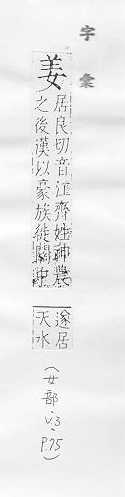 字彙
姜
居良切音江齊姓神農
之後漢以豪族徙關中
遂居
天水
(女部、v.3、p.75)